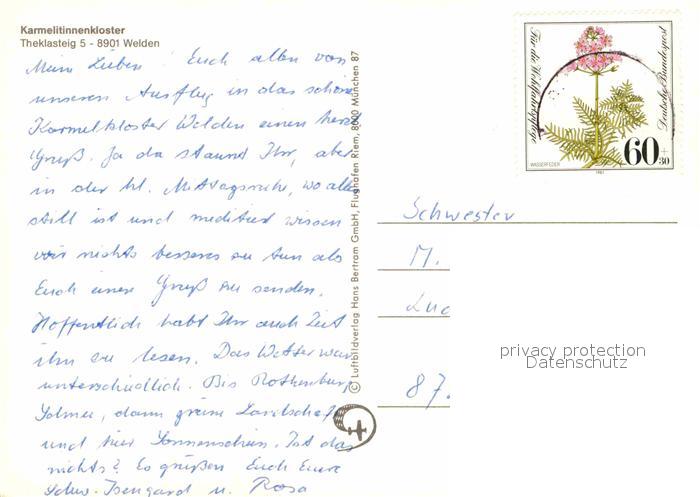 Karmelitinnenkloster
Theklasteig 5 - 8901 Welden
Meine Lieben! Euch allen von
unseren Ausflug in das schöne
Karmelkloster Welden einen herz
Gruß. Ja da staunt Ihr, aber
in der hl. Mittagsruhe, wo alles
still ist und meditiert wissen
wir nichts besseres zu tun als
Euch einen Gruß zu senden.
Hoffentlich habt Ihr auch Zeit
ihn zu lesen. Das Wetter war
unterschiedlich. Bis Rothenburg
Schnee, dann grüne Landschaft
und hier Sonnenschein. Ist das
nichts? Es grüßen Euch Eure
Schw. Isengard u. Rosa
© Luftbildverlag Hans Bertram GmbH, Flughafen Riem, 8000 München 87
Für die Wohlfahrtspflege
Deutsche Bundespost
WASSERFEDER
60 + 30
1981
Schwester
M.
Luc
87.
privacy protection
Datenschutz